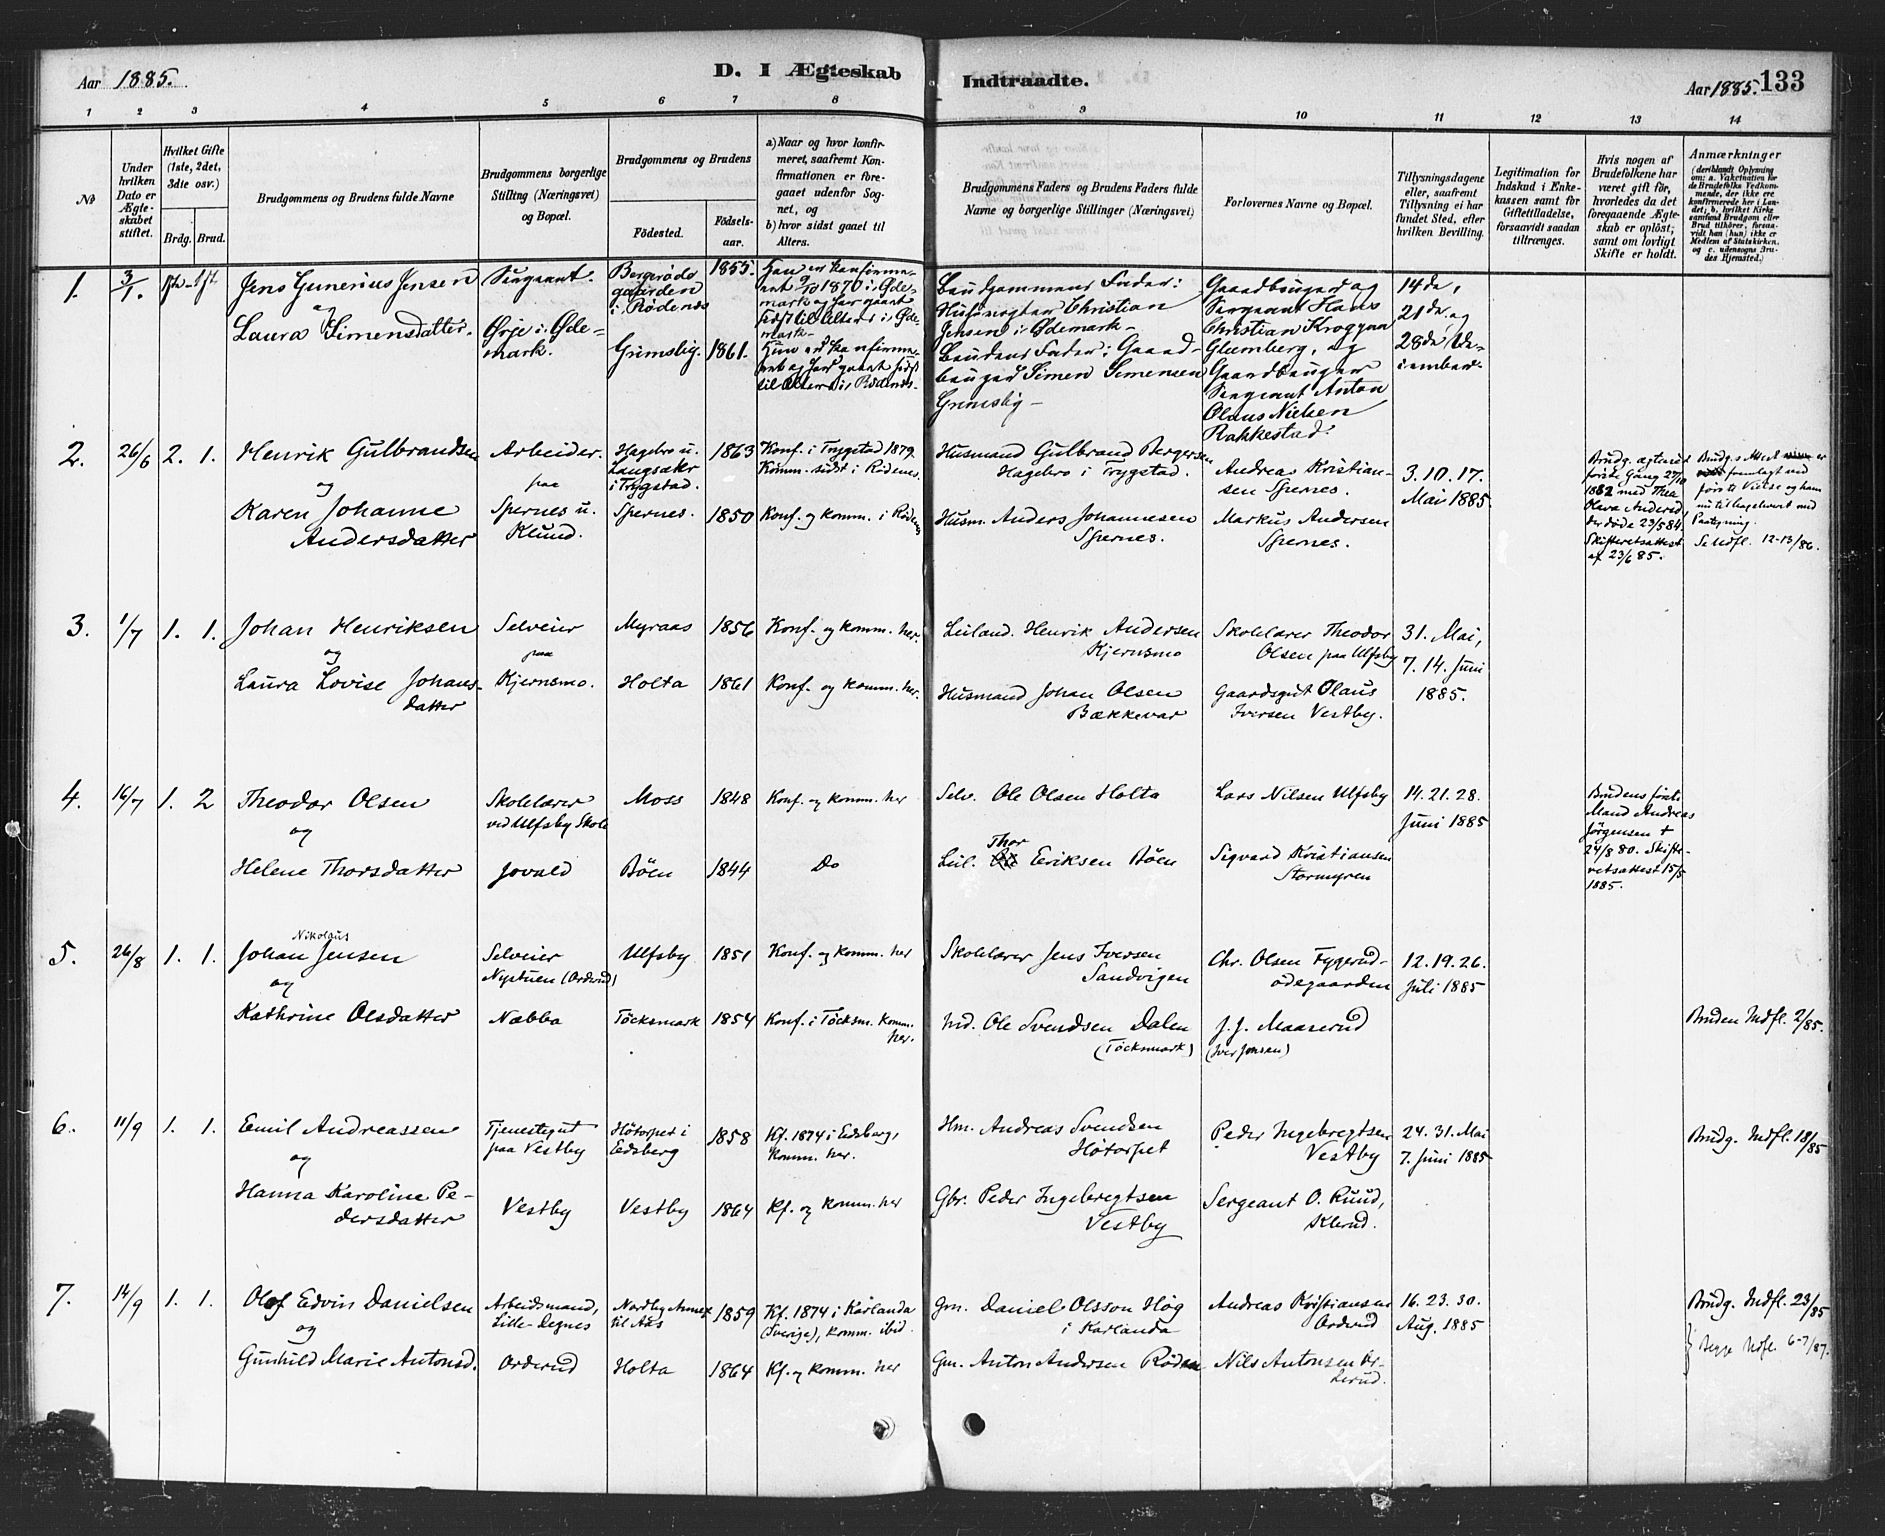 Aar 1885.
D. I Ægteskab Indtraadte.
Aar 1885. 133
1 2 3 4 5 6 7 8 9 10 11 12 13 14
No
Under hvilken Dato er Ægteskabet stiftet.
Hvilket Gifte (1ste, 2det, 3die osv.)
Brdg. Brud.
Brudgommens og Brudens fulde Navne
Brudgommens borgerlige Stilling (Næringsvei) og Bopæl.
Brudgommens og Brudens
Fødested. Fødselsaar.
a) Naar og hvor konfirmeret, saafremt Konfirmationen er foregaaet udenfor Sognet, og
b) hvor sidst gaaet til Alters.
Brudgommens Faders og Brudens Faders fulde Navne og borgerlige Stillinger (Næringsvei)
Forlovernes Navne og Bopæl.
Tillysningsdagene eller, saafremt Tillysning ei har fundet Sted, efter hvilken Bevilling.
Legitimation for Indskud i Enkekassen samt for Giftetilladelse, forsaavidt saadan tiltrænges.
Hvis nogen af Brudefolkene har været gift før, hvorledes da det foregaaende Ægteskab er opløst; samt om lovligt Skifte er holdt.
Anmærkninger
1. 3/1.
Jens Gunerius Jensen
og
Laura Simensdatter.
Sergeant.
Ørje i Ødemark.
i Rødenes 1855.
Grimsby. 1861.
Han er konfirmeret 1870 i Ødemark og har gaaet sidst til Alters i Ødemark.
Hun er konfirmeret og har gaaet sidst til Alters i Rødenes.
Brudgommens Fader: Christian Jensen i Ødemark-
Brudens Fader: Gaardbruger Simen Simensen Grimsby-
Gaardbruger og Sergeant Hans Christian Glæmberg, og Gaardbruger Sergeant Anton Olaus Nielsen Rakkestad.
14de, 21de og 28de
2. 26/6 2. 1.
Henrik Gulbrandsen
og
Karen Johanne
Andersdatter
Arbeider.
paa
Spernes u.
Klund.
Hagebro u.
Langsæter
i Trygstad. 1863
Spernes. 1850
Konf. i Trygstad 1879.
Komm. sidst i Rødenes.
Konf. og komm. i Rødenes
Husmand Gulbrand Bergersen
Hagebro i Trygstad.
Husm. Anders Johannesen
Spernes.
Andreas Kristiansen Spernes.
Markus Andersen
Spernes.
3. 10. 17.
Mai 1885.
Brudg. ægteviet
første Gang 27/10
1882 med Thea
Olava Andersd.
der døde 23/5 84.
Skifteretsattest
af 23/6 85.
Brudg.s Attest er
fremlagt ved
første Vielse og ham
nu tilbageleveret med
Paategning.
Se Udfl. 12-13/86.
3. 1/7 1. 1.
Johan Henriksen
og
Laura Lovise Johansdatter
Selveier
paa
Kjernsmo.
Myraas 1856
Holta 1861
Konf. og komm. her.
Konf. og komm. her.
Leiland. Henrik Andersen
Kjernsmo
Husmand Johan Olsen
Bækkevar
Skolelærer Theodor
Olsen paa Ulfsby
Gaardsgut Olaus
Iversen Vestby.
31. Mai,
7. 14. Juni
1885.
4. 16/7 1. 2
Theodor Olsen
og
Helene Thorsdatter
Skolelærer
ved Ulfsby Skole
Jovald
Moss 1848
Böen 1844
Konf. og komm. her
Do
Selv. Ole Olsen Holta
Leil. Thor Eriksen Böen
Lars Nilsen Ulfsby
Sigvard Kristiansen
Stormyren
14. 21. 28.
Juni 1885
Brudens første
Mand Andreas
Jørgensen †
24/8 80. Skifteretsattest 15/5
1885.
5. 26/8 1. 1.
Nikolaus
Johan Jensen
og
Kathrine Olsdatter
Selveier
Nystuen (Orderud)
Næbba
Ulfsby 1851
Töcksmark 1854
Konf. og komm. her
Konf. i Töcksm. Komm.
her.
Skolelærer Jens Iversen
Sandvigen
Md. Ole Svendsen Dalen
(Töcksmark)
Chr. Olsen Fygerudødegaarden
J. J. Maaserud
(Iver Jensen)
12. 19. 26.
Juli 1885
Bruden Indfl. 2/85.
6. 11/9 1. 1.
Emil Andreassen
og
Hanna Karoline Pedersdatter
Tjenestegut
paa Vestby
Vestby
Høtorpet i
Eidsberg 1858
Vestby 1864
Kf. 1874 i Eidsberg,
komm. her.
Kf. og komm. her
Hm. Andreas Svendsen
Høtorpet
Gbr. Peder Ingebregtsen
Vestby
Peder Ingebregtsen
Vestby
Sergeant O. Ruud,
Klerud.
24. 31. Mai
7. Juni 1885
Brudg. Indfl. 18/85
7. 14/9 1. 1.
Olof Edvin Danielsen
og
Gunhild Marie Antonsd.
Arbeidsmand,
Lille-Degnes
Orderud
Nordby Annex
til Aas 1859
Holta 1864
Kf. 1874 i Karlanda
(Sverige), komm. ibid.
Kf. og komm. her
Gm. Daniel Olsson Hög
i Karlanda
Gm. Anton Andersen
Andreas Kristiansen
Orderud
Nils Antonsen
16. 23. 30.
Aug. 1885
Brudg. Indfl. 23/85
Begge Udfl. 6-7/87.